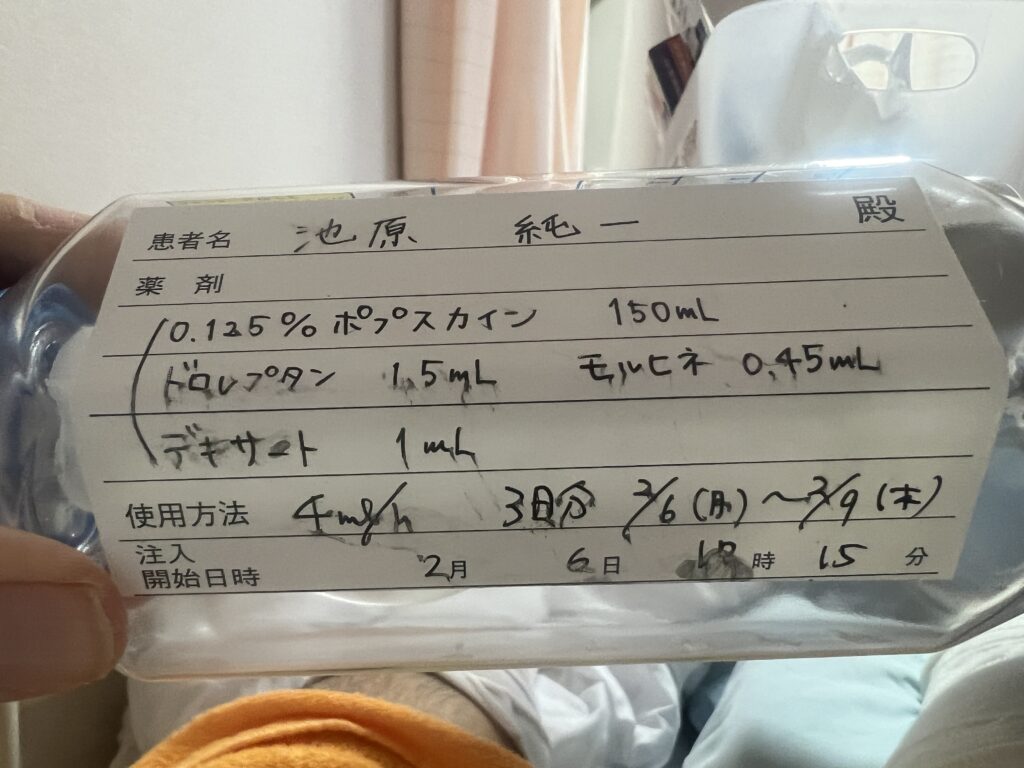 患者名 池原 純一 殿
薬剤
0.125% ポプスカイン 150mL
ドロレプタン 1.5mL モルヒネ 0.45mL
デキサート 1mL
使用方法 4mg/h 3日分 2/6(月)〜2/9(木)
注入
開始日時 2月 6日 時 15分